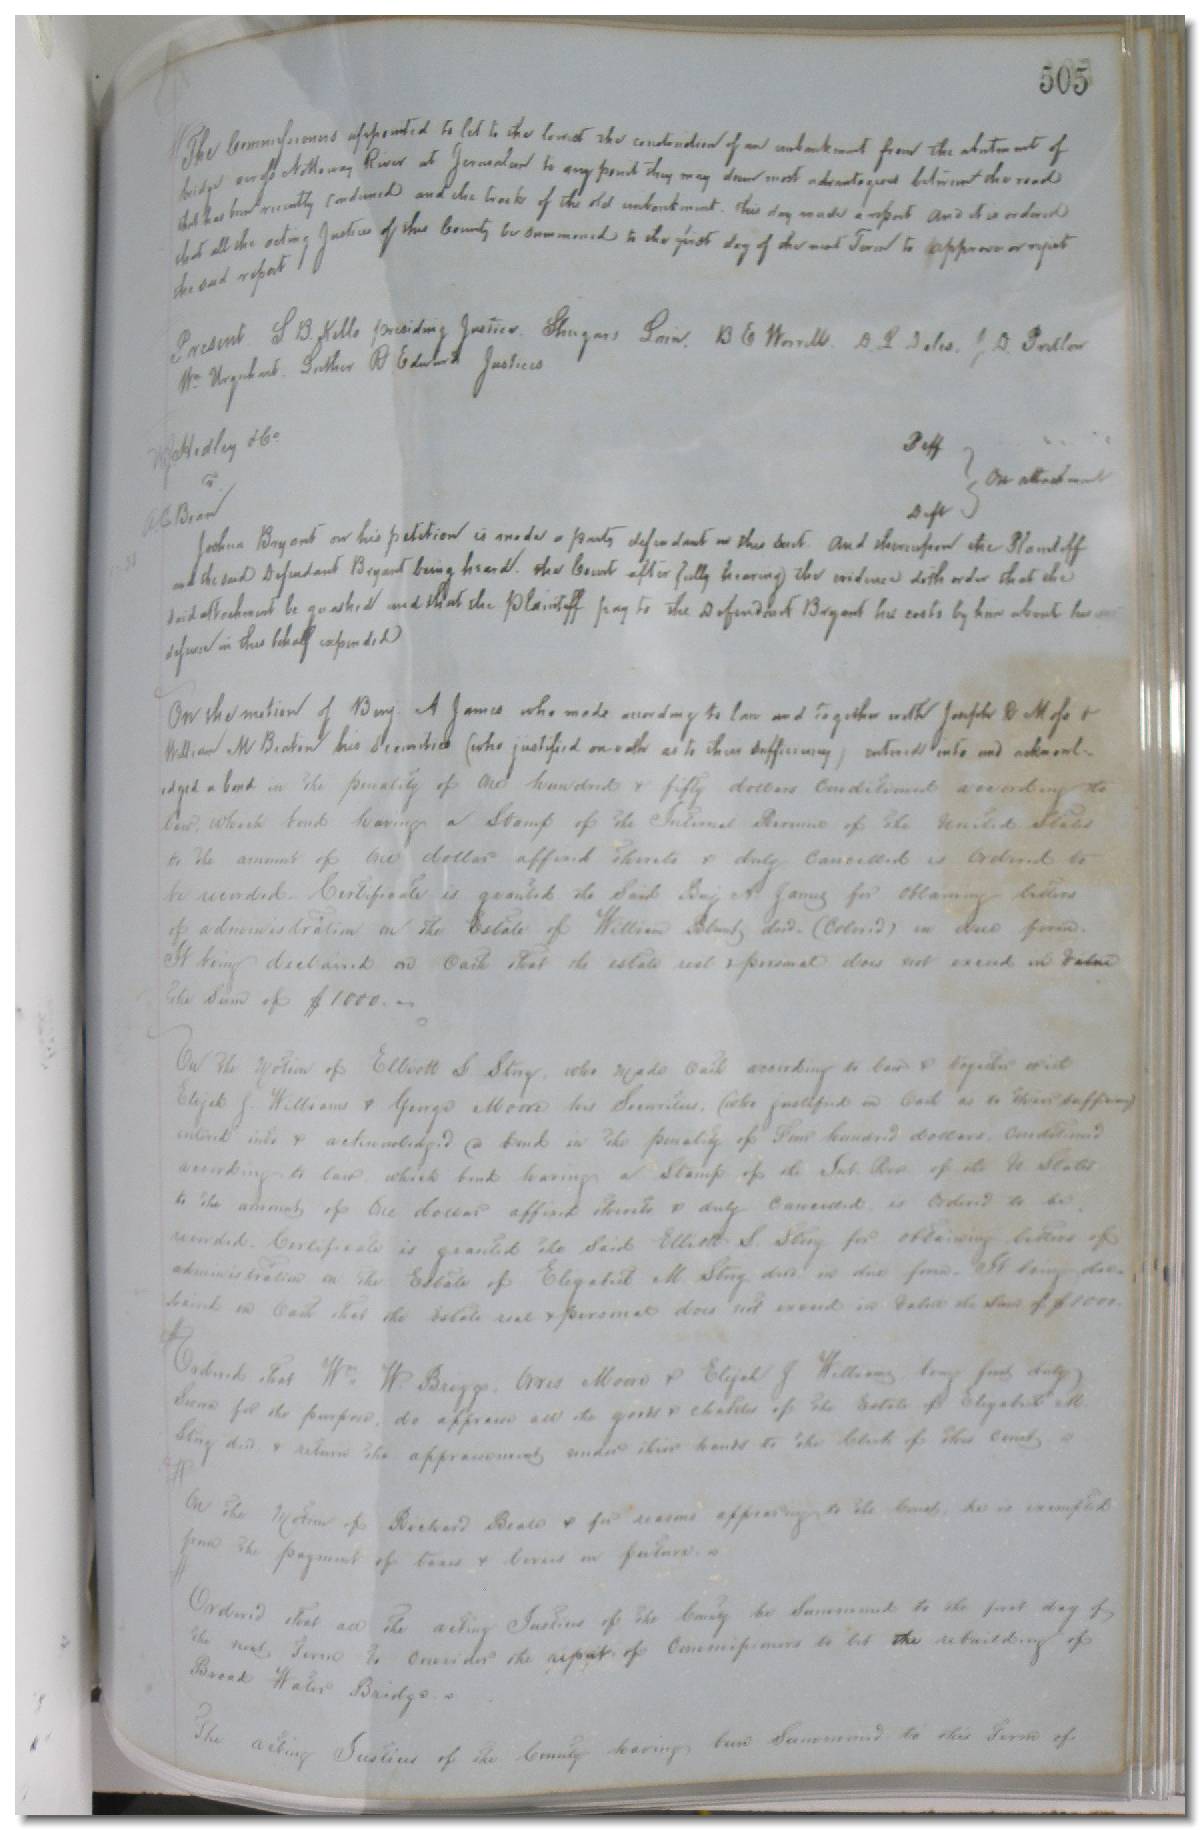 505
The Commissioners appointed to let to the lowest the construction of an embankment from the abutment of
bridge across Nottoway River at Jerusalem to any point they may deem most advantageous between the road
that has been recently condemned and the track of the old embankment. this day made a report and it is ordered
that all the acting Justices of this County be summoned to the first day of the next Term to approve or reject
the said report
Present S B. Kello presiding Justice. Shugars Lain. B E Worrell. D. P. J D. Pretlow
Wm Urquhart. Luther R Edwards Justices
Hedley & Co Plff
vs On attachment
Deft
Joshua Bryant on his petition is made a party defendant in this suit. And thereupon the Plaintiff
and the said Defendant Bryant being heard. the Court after fully hearing the evidence doth order that the
said attachment be quashed and that the Plaintiff pay to the Defendant Bryant his costs by him about his
defense in this behalf expended
On the motion of Benj. A James who made according to law and together with Joseph D Moss &
William M Beaton his securities (who justified on oath as to their sufficiency) entered into and acknowl-
edged a bond in the penality of One hundred & fifty dollars Conditioned according to
law, which bond having a Stamp of the Internal Revenue of the United States
to the amount of One dollar affixed thereto & duly Cancelled is Ordered to
be recorded. Certificate is granted the Said Benj A James for obtaining letters
of administration on the Estate of William Blunt decd. (Colored) in due form.
It being declared on Oath that the estate real & personal does not exceed in value
the Sum of $1000.
On the Motion of Elliott S. Story, who made Oath according to law & together with
Elijah J. Williams & George Moore his Securities, (who justified on Oath as to their sufficiency)
entered into & acknowledged a bond in the penality of Four hundred dollars. Conditioned
according to law which bond having a Stamp of the Int. Rev. of the U States
to the amount of One dollar affixed thereto & duly Cancelled is Ordered to be
recorded. Certificate is granted the Said Elliott S. Story for obtaining letters of
administration on the Estate of Elizabeth M Story decd in due form. It being dec-
lared on Oath that the Estate real & personal does not exceed in value the Sum of $1000.
Ordered that Wm W. Briggs, Moore & Elijah J Williams being first duly
Sworn for the purpose, do appraise all the goods & chattels of the Estate of Elizabeth M.
Story decd. & return the appraisement under their hands to the Clerk of this Court.
On the Motion of Richard Beale & for reasons appearing to the Court, he is exempted
from the payment of taxes & levies in future.
Ordered that all the acting Justices of the County be Summoned to the first day of
the next Term to consider the report of Commissioners to let the rebuilding of
Broad Water Bridge.
The acting Justices of the County having been Summoned to this Term of